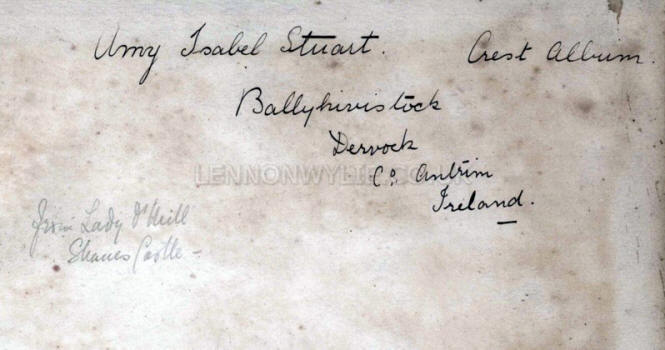 Amy Isabel Stuart. Crest Album.
Ballyhivistock
Dervock
LENNONWYLIE.CO.UK
Co. Antrim
Ireland.
from Lady O'Neill
Shanes Castle -